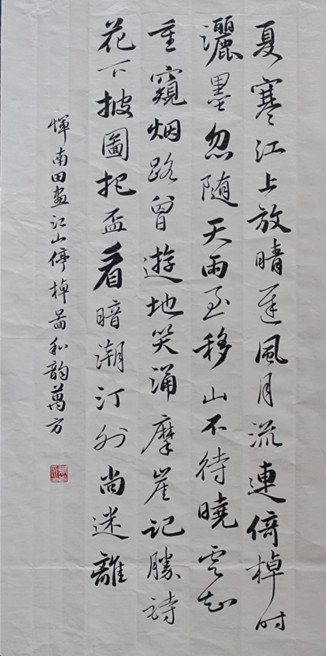 夏寒江上放晴遲風月流連倚棹时
灑墨忽随天雨至移山不待曉雲知
重窺烟路曾遊地笑誦摩崖記勝詩
花下披圖把盃看暗潮汀外尚迷離
惲南田畫江山停棹啚和韵萬方